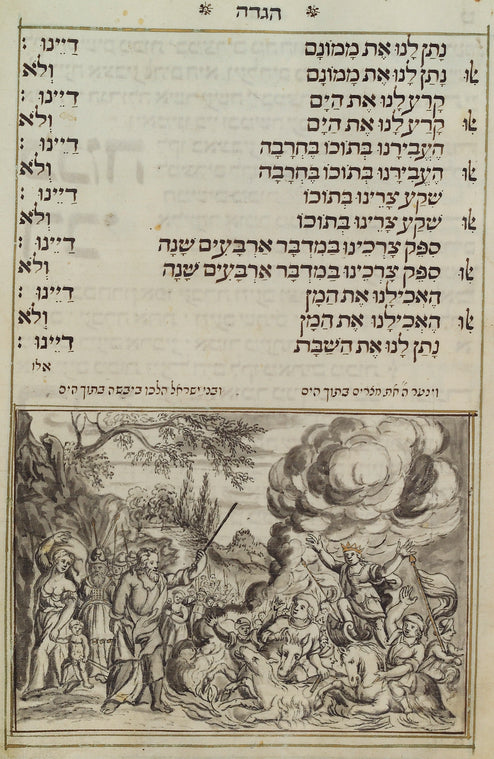 הגדה
נָתַן לָנוּ אֶת מָמוֹנָם דַיֵינוּ :
אִלוּ נָתַן לָנוּ אֶת מָמוֹנָם וְלֹא
קָרַע לָנוּ אֶת הַיָם דַיֵינוּ :
אִלוּ קָרַע לָנוּ אֶת הַיָם וְלֹא
הֶעֱבִירָנוּ בְּתוֹכוֹ בֶּחָרָבָה דַיֵינוּ :
אִלוּ הֶעֱבִירָנוּ בְּתוֹכוֹ בֶּחָרָבָה וְלֹא
שִׁקַע צָרֵינוּ בְּתוֹכוֹ דַיֵינוּ :
אִלוּ שִׁקַע צָרֵינוּ בְּתוֹכוֹ וְלֹא
סִפֵּק צָרְכֵינוּ בַּמִדְבָּר אַרְבָּעִים שָׁנָה דַיֵינוּ :
אִלוּ סִפֵּק צָרְכֵינוּ בַּמִדְבָּר אַרְבָּעִים שָׁנָה וְלֹא
הֶאֱכִילָנוּ אֶת הַמָן דַיֵינוּ :
אִלוּ הֶאֱכִילָנוּ אֶת הַמָן וְלֹא
נָתַן לָנוּ אֶת הַשַׁבָּת דַיֵינוּ :
אלו
וינער ה' את מצרים בתוך הים ובני ישראל הלכו ביבשה בתוך הים